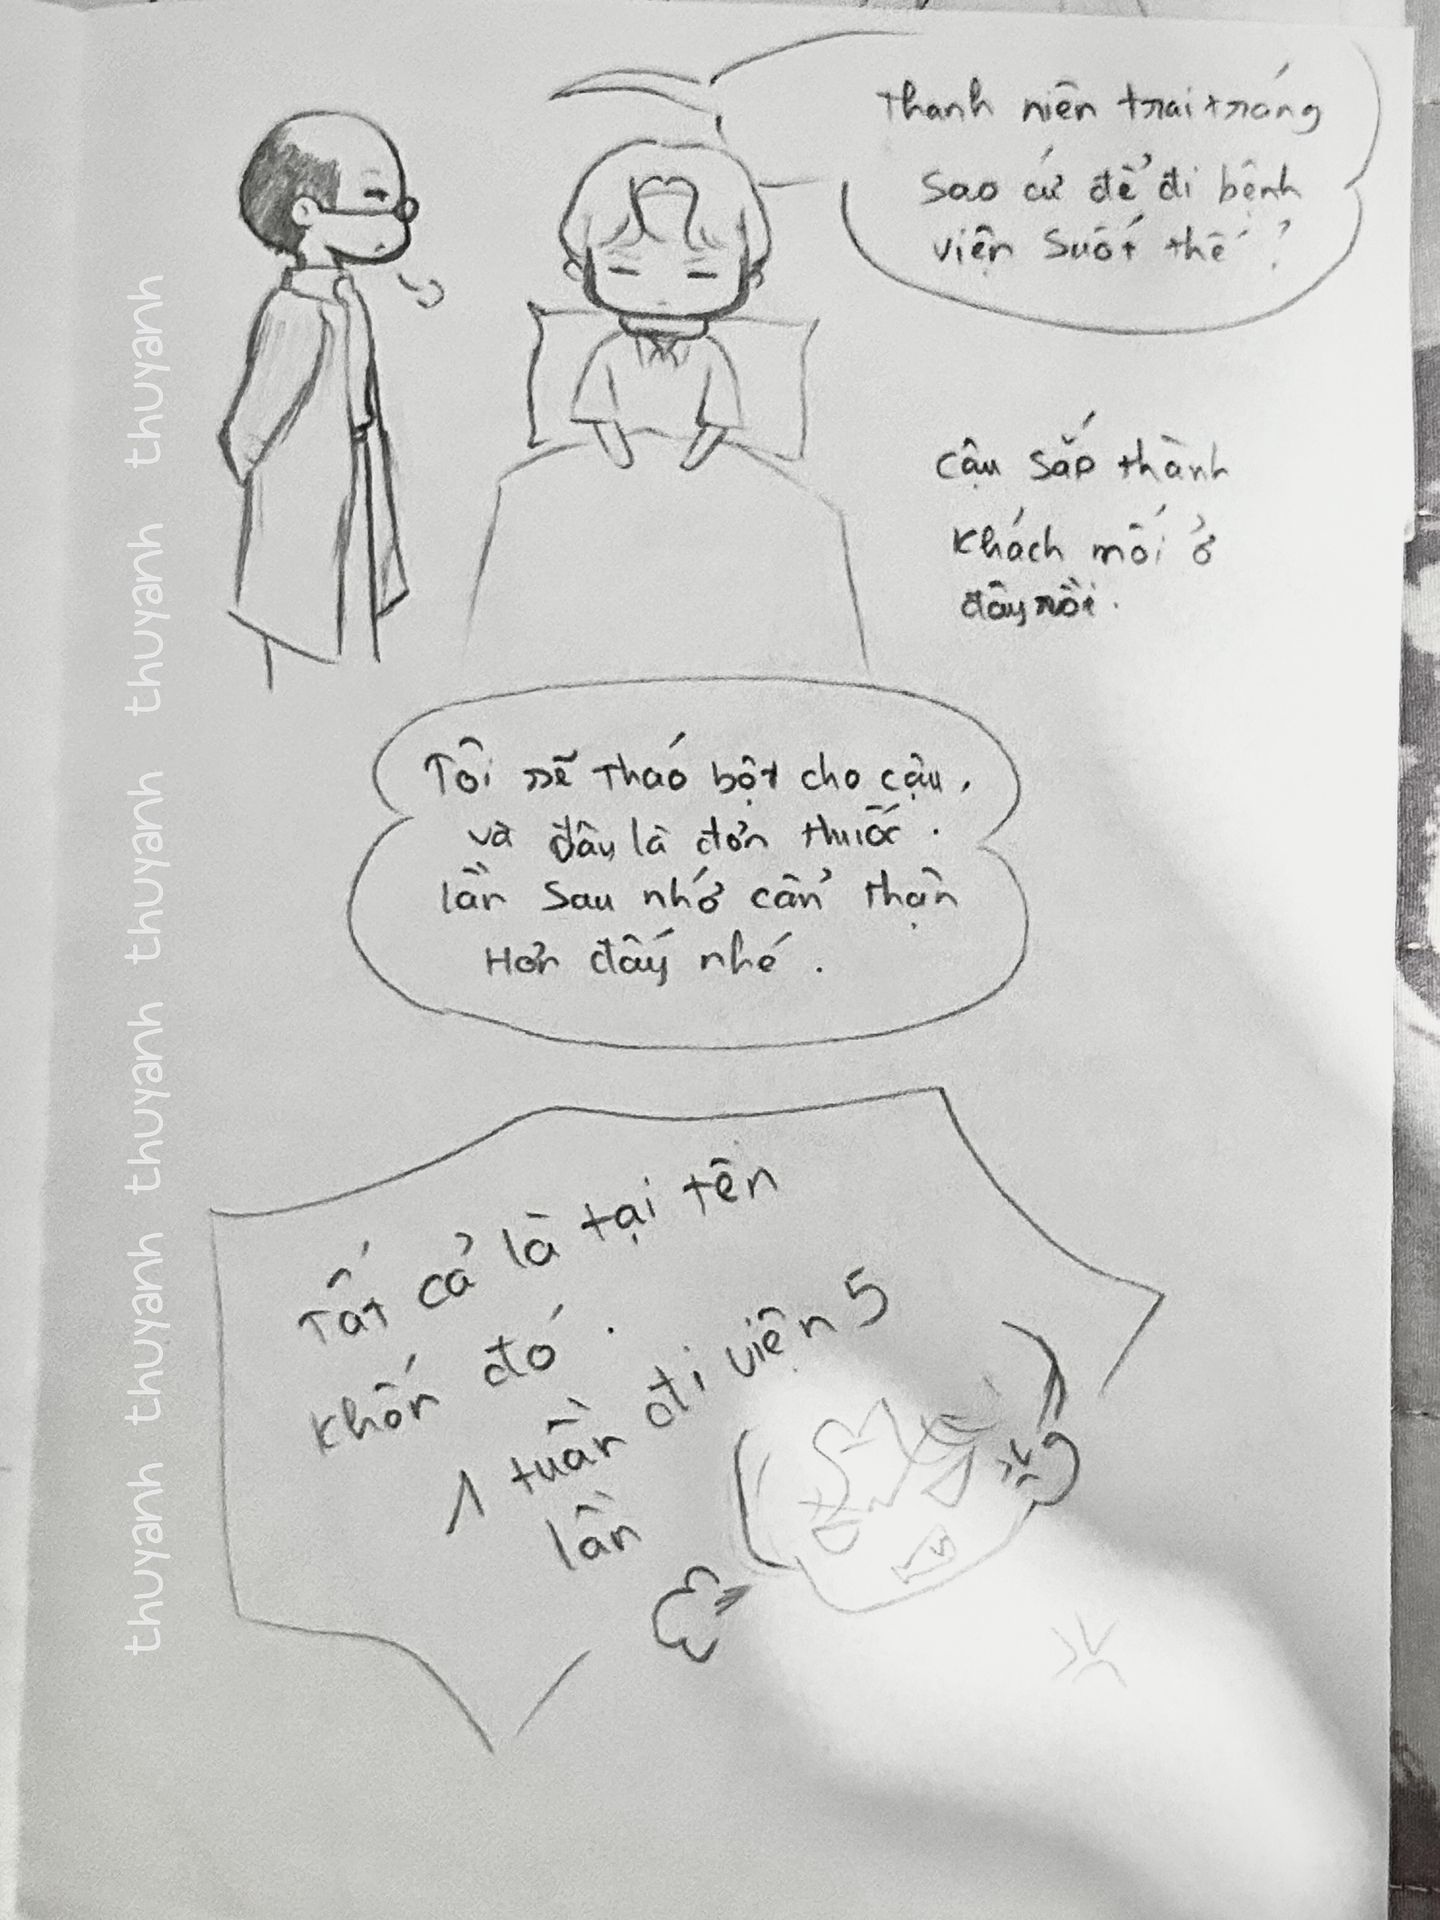 Thanh niên trai tráng
Sao cứ để đi bệnh
viện Suốt thế ?
Cậu sắp thành
Khách mối ở
đây rồi.
Tôi sẽ tháo bột cho cậu,
và đâu là đơn thuốc.
lần Sau nhớ cẩn thận
Hơn đấy nhé.
Tất cả là tại tên
khốn đó.
1 tuần đi viện 5
lần
thuyanh
thuyanh
thuyanh
thuyanh
thuyanh
thuyanh